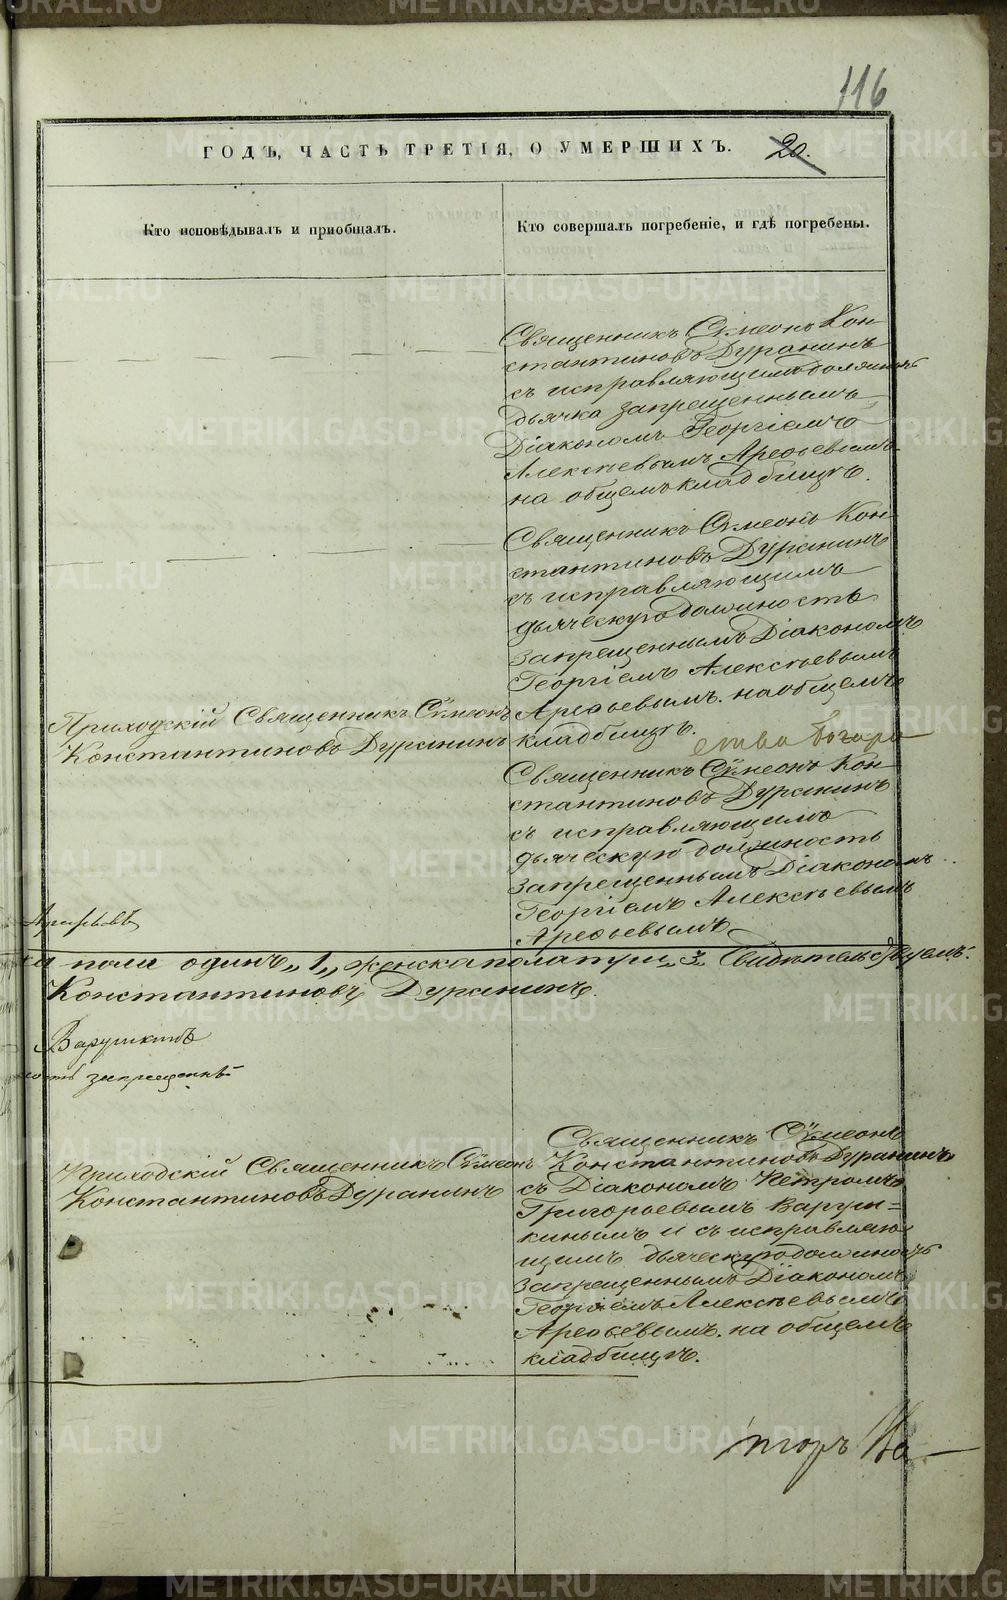 116
ГОДЪ, ЧАСТЬ ТРЕТІЯ, О УМЕРШИХЪ.
20.
Кто исповѣдывалъ и приобщалъ.
Кто совершалъ погребеніе, и гдѣ погребены.
Священникъ Сѵмеонъ Кон-
стантиновъ Дуранинъ
съ исправляющимъ должность
дьячка запрещеннымъ
Діакономъ Георгіемъ
Алексѣевымъ Арефьевымъ
на общемъ кладбищѣ.
Священникъ Сѵмеонъ Кон-
стантиновъ Дуранинъ
съ исправляющимъ
дьяческую должность
запрещеннымъ Діакономъ
Георгіемъ Алексѣевымъ
Арефьевымъ. на общемъ
кладбищѣ.
Приходскій Священникъ Сѵмеонъ
Константиновъ Дуранинъ
Священникъ Сѵмеонъ Кон-
стантиновъ Дуранинъ
съ исправляющимъ
дьяческую должность
запрещеннымъ Діакономъ
Георгіемъ Алексѣевымъ
Арефьевымъ
пола одинъ „1„ женска пола три „3„
Константиновъ Дуранинъ.
запрещенъ
Приходскій Священникъ Сѵмеонъ
Константиновъ Дуранинъ
Священникъ Сѵмеонъ
Константиновъ Дуранинъ
съ Діакономъ Петромъ
Григорьевымъ Варуш=
кинымъ и съ исправляю-
щимъ дьяческую должность
запрещеннымъ Діакономъ
Георгіемъ Алексѣевымъ
Арефьевымъ. на общемъ
кладбищѣ.
METRIKI.GASO-URAL.RU